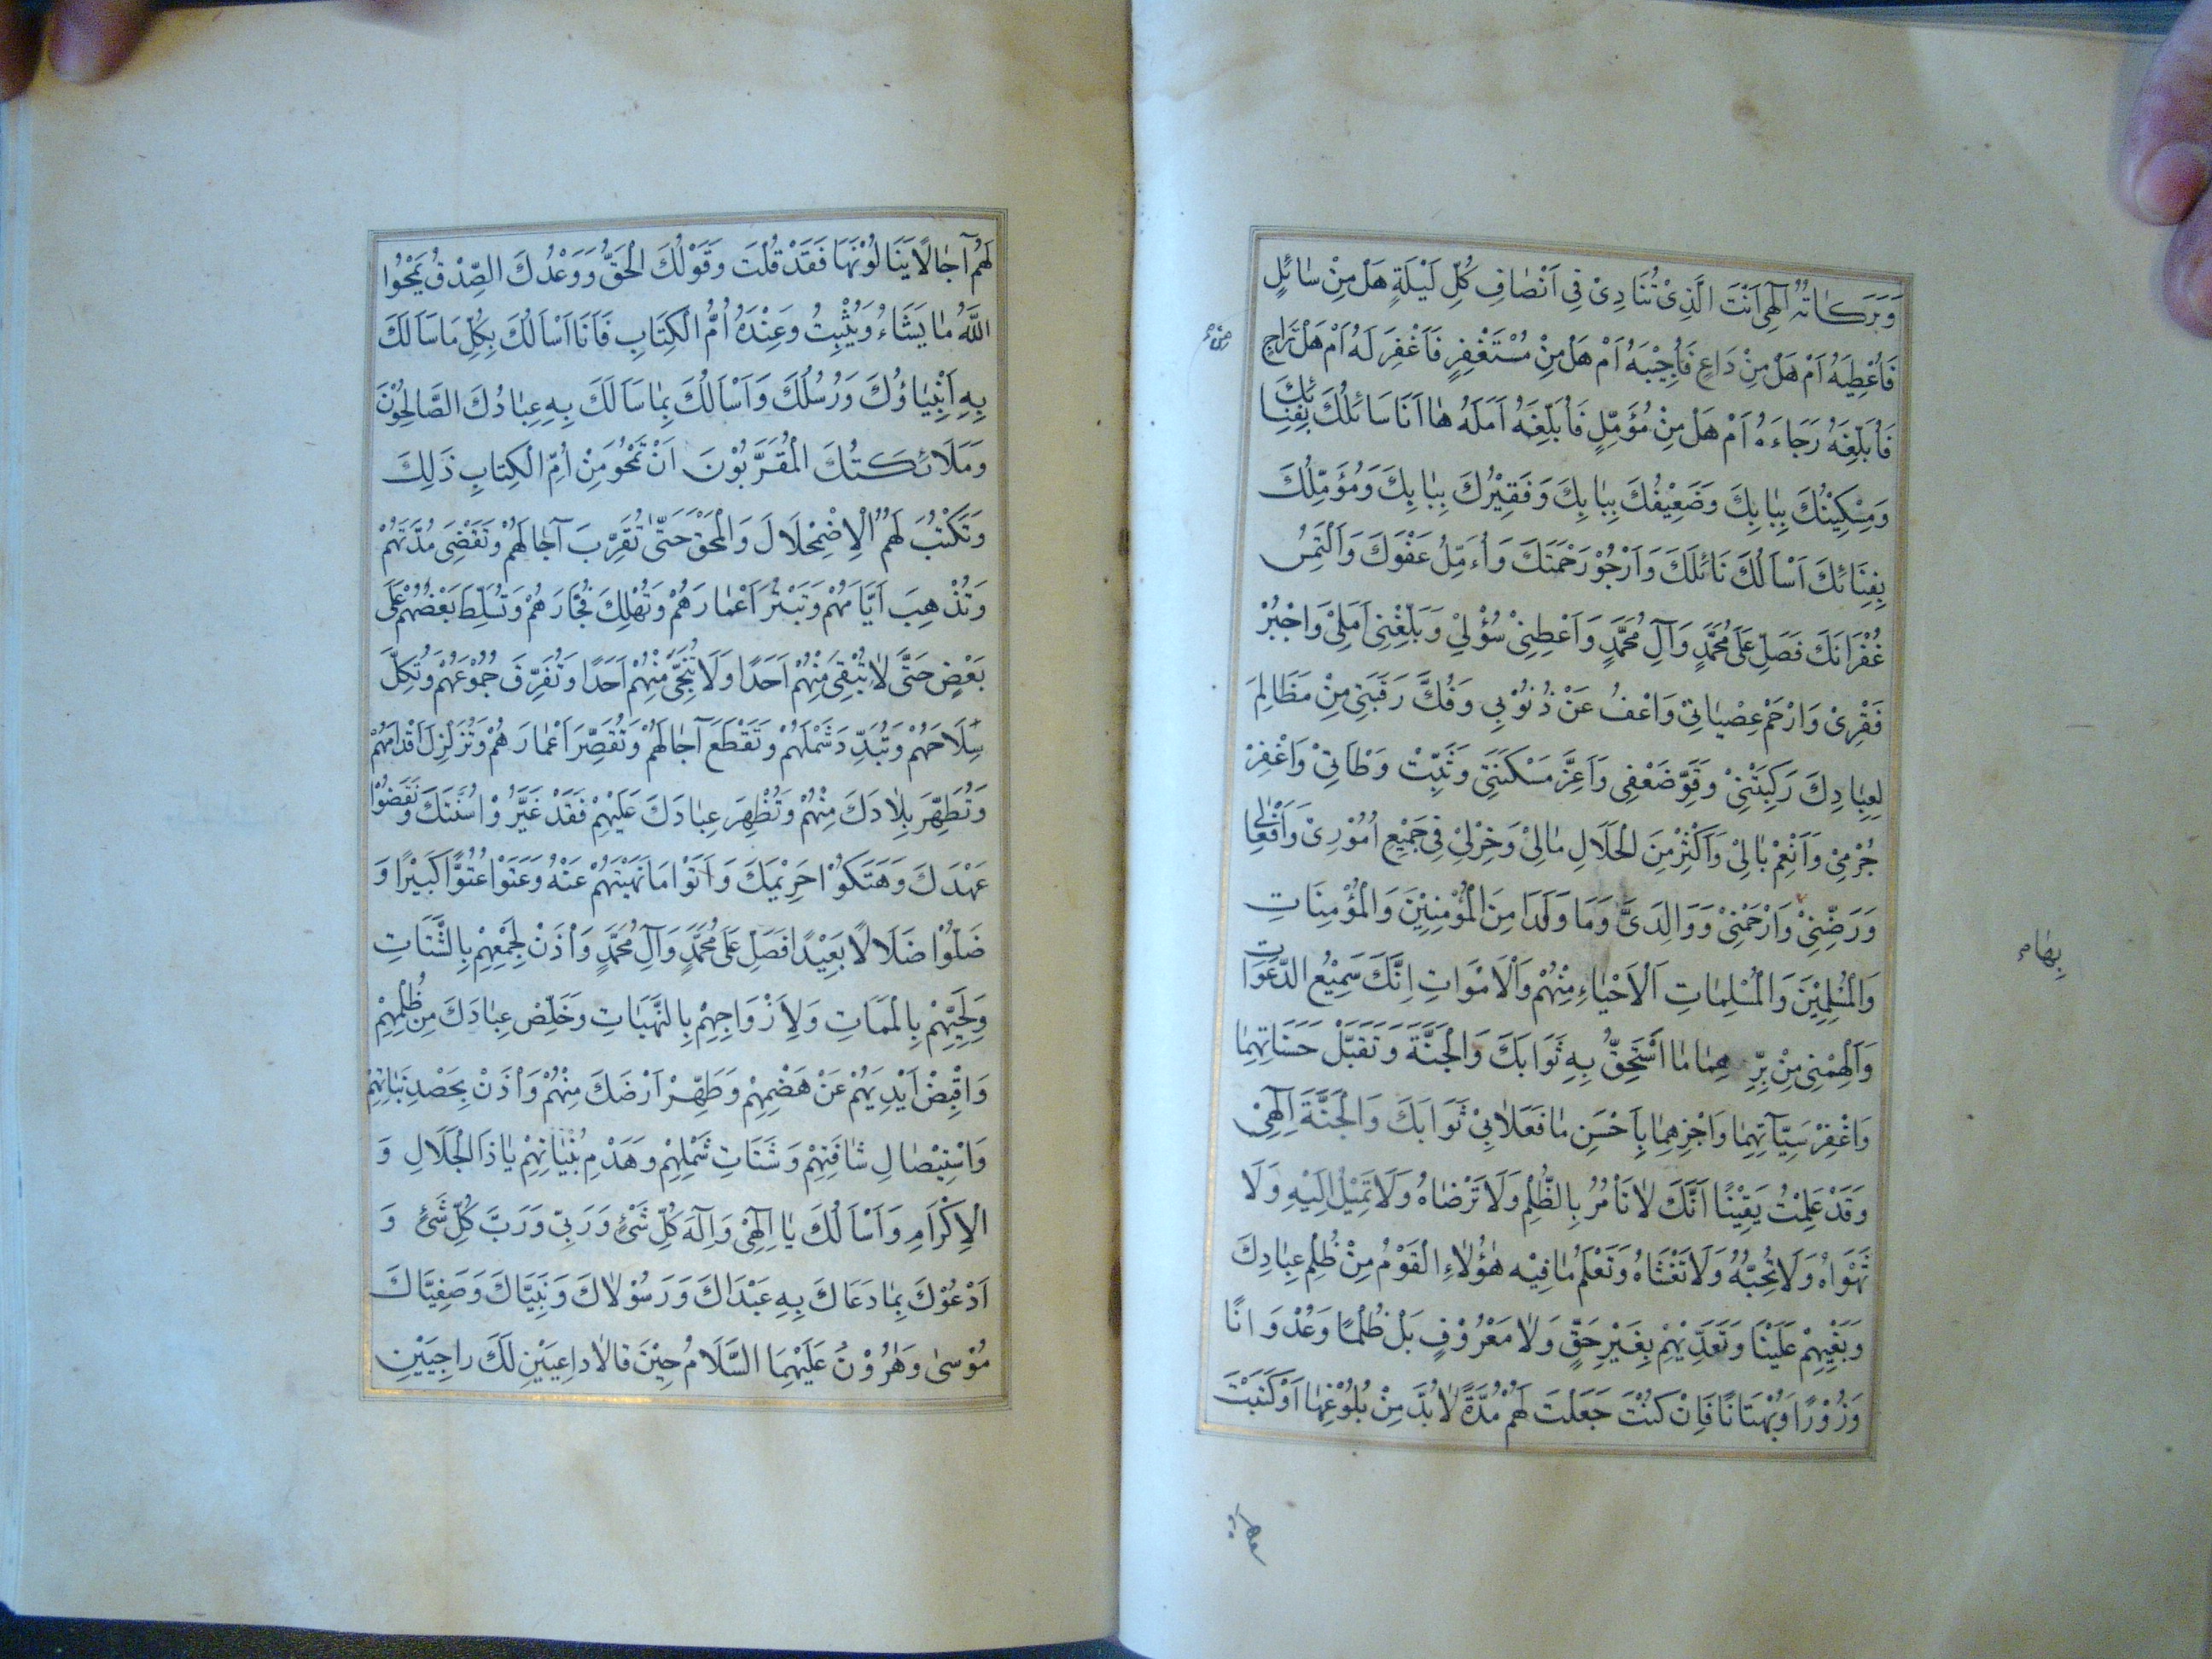 وَبَرَكَاتُهُ اِلٰهِى اَنْتَ الَّذِىْ تُنَادِىْ فِى اَنْصَافِ كُلِّ لَيْلَةٍ هَلْ مِنْ سَائِلٍ
فَاُعْطِيَهُ اَمْ هَلْ مِنْ دَاعٍ فَاُجِيْبَهُ اَمْ هَلْ مِنْ مُسْتَغْفِرٍ فَاَغْفِرَ لَهُ اَمْ هَلْ رَاجٍ
فَاُبَلِّغَهُ رَجَاءَهُ اَمْ هَلْ مِنْ مُؤَمِّلٍ فَاُبَلِّغَهُ اَمَلَهُ هَا اَنَا سَائِلُكَ بِفِنَائِكَ
وَمِسْكِيْنُكَ بِبَابِكَ وَضَعِيْفُكَ بِبَابِكَ وَفَقِيْرُكَ بِبَابِكَ وَمُؤَمِّلُكَ
بِفِنَائِكَ اَسْاَلُكَ نَائِلَكَ وَاَرْجُوْ رَحْمَتَكَ وَاُءَمِّلُ عَفْوَكَ وَاَلْتَمِسُ
غُفْرَانَكَ فَصَلِّ عَلَى مُحَمَّدٍ وَآلِ مُحَمَّدٍ وَاَعْطِنِىْ سُؤْلِىْ وَبَلِّغْنِى اَمَلِىْ وَاجْبُرْ
فَقْرِىْ وَارْحَمْ عِصْيَانِىْ وَاعْفُ عَنْ ذُنُوْبِى وَفُكَّ رَقَبَتِى مِنْ مَظَالِمَ
لِعِبَادِكَ رَكِبَتْنِىْ وَقَوِّ ضَعْفِى وَاَعِزَّ مَسْكَنَتِى وَثَبِّتْ وَطْاَتِىْ وَاغْفِرْ
جُرْمِىْ وَاَنْعِمْ بَالِىْ وَاَكْثِرْ مِنَ الْحَلَالِ مَالِىْ وَخِرْ لِىْ فِى جَمِيْعِ اُمُوْرِىْ وَاَفْعَالِى
وَرَضِّنِىْ وَارْحَمْنِىْ وَوَالِدَىَّ وَمَا وَلَدَا مِنَ الْمُؤْمِنِيْنَ وَالْمُؤْمِنَاتِ
وَالْمُسْلِمِيْنَ وَالْمُسْلِمَاتِ اَلْاَحْيَاءِ مِنْهُمْ وَالْاَمْوَاتِ اِنَّكَ سَمِيْعُ الدَّعَوَاتِ
وَاَلْهِمْنِى مِنْ بِرِّهِمَا مَا اَسْتَحِقُّ بِهِ ثَوَابَكَ وَالْجَنَّةَ وَتَقَبَّلْ حَسَنَاتِهِمَا
وَاغْفِرْ سَيِّآتِهِمَا وَاجْزِهِمَا بِاَحْسَنِ مَا فَعَلَا بِىْ ثَوَابَكَ وَالْجَنَّةَ اِلٰهِىْ
وَقَدْ عَلِمْتُ يَقِيْنًا اَنَّكَ لَا تَاْمُرُ بِالظُّلْمِ وَلَا تَرْضَاهُ وَلَا تَمِيْلُ اِلَيْهِ وَلَا
تَهْوَاهُ وَلَا تُحِبُّهُ وَلَا تَغْشَاهُ وَتَعْلَمُ مَا فِيْهِ هٰؤُلَاءِ الْقَوْمُ مِنْ ظُلْمِ عِبَادِكَ
وَبَغْيِهِمْ عَلَيْنَا وَتَعَدِّيْهِمْ بِغَيْرِ حَقٍّ وَلَا مَعْرُوْفٍ بَلْ ظُلْمًا وَعُدْوَانًا
وَزُوْرًا وَبُهْتَانًا فَاِنْ كُنْتَ جَعَلْتَ لَهُمْ مُدَّةً لَا بُدَّ مِنْ بُلُوْغِهَا اَوْ كَتَبْتَ
لَهُمْ آجَالًا يَنَالُوْنَهَا فَقَدْ قُلْتَ وَقَوْلُكَ الْحَقُّ وَوَعْدُكَ الصِّدْقُ يَمْحُوا
اللّٰهُ مَا يَشَاءُ وَيُثْبِتُ وَعِنْدَهُ اُمُّ الْكِتَابِ فَاَنَا اَسْاَلُكَ بِكُلِّ مَا سَاَلَكَ
بِهِ اَنْبِيَاؤُكَ وَرُسُلُكَ وَاَسْاَلُكَ بِمَا سَاَلَكَ بِهِ عِبَادُكَ الصَّالِحُوْنَ
وَمَلَائِكَتُكَ الْمُقَرَّبُوْنَ اَنْ تَمْحُوَ مِنْ اُمِّ الْكِتَابِ ذَلِكَ
وَتَكْتُبَ لَهُمُ الْاِضْمِحْلَالَ وَالْمَحْقَ حَتّٰى تُقَرِّبَ آجَالَهُمْ وَتَقْضِىَ مُدَّتَهُمْ
وَتُذْهِبَ اَيَّامَهُمْ وَتَبْتُرَ اَعْمَارَهُمْ وَتُهْلِكَ فُجَّارَهُمْ وَتُسَلِّطَ بَعْضَهُمْ عَلَى
بَعْضٍ حَتَّى لَا تُبْقِىَ مِنْهُمْ اَحَدًا وَلَا تُنَجِّىَ مِنْهُمْ اَحَدًا وَتُفَرِّقَ جُمُوْعَهُمْ وَتُكِلَّ
سِلَاحَهُمْ وَتُبَدِّدَ شَمْلَهُمْ وَتَقْطَعَ آجَالَهُمْ وَتُقَصِّرَ اَعْمَارَهُمْ وَتُزَلْزِلَ اَقْدَامَهُمْ
وَتُطَهِّرَ بِلَادَكَ مِنْهُمْ وَتُظْهِرَ عِبَادَكَ عَلَيْهِمْ فَقَدْ غَيَّرُوْا سُنَّتَكَ وَنَقَضُوْا
عَهْدَكَ وَهَتَكُوْا حَرِيْمَكَ وَاَتَوْا مَا نَهَيْتَهُمْ عَنْهُ وَعَتَوْا عُتُوًّا كَبِيْرًا وَ
ضَلُّوْا ضَلَالًا بَعِيْدًا فَصَلِّ عَلَى مُحَمَّدٍ وَآلِ مُحَمَّدٍ وَاْذَنْ لِجَمْعِهِمْ بِالشَّتَاتِ
وَلِحَيِّهِمْ بِالْمَمَاتِ وَلِاَزْوَاجِهِمْ بِالنَّهَبَاتِ وَخَلِّصْ عِبَادَكَ مِنْ ظُلْمِهِمْ
وَاقْبِضْ اَيْدِيَهُمْ عَنْ هَضْمِهِمْ وَطَهِّرْ اَرْضَكَ مِنْهُمْ وَاْذَنْ بِحَصْدِ نَبَاتِهِمْ
وَاسْتِيْصَالِ شَافَتِهِمْ وَشَتَاتِ شَمْلِهِمْ وَهَدْمِ بُنْيَانِهِمْ يَا ذَا الْجَلَالِ وَ
الْاِكْرَامِ وَاَسْاَلُكَ يَا اِلٰهِىْ وَاِلٰهَ كُلِّ شَىْءٍ وَرَبِّى وَرَبَّ كُلِّ شَىْءٍ وَ
اَدْعُوْكَ بِمَا دَعَاكَ بِهِ عَبْدَاكَ وَرَسُوْلَاكَ وَنَبِيَّاكَ وَصَفِيَّاكَ
مُوْسٰى وَهٰرُوْنُ عَلَيْهِمَا السَّلَامُ حِيْنَ قَالَا دَاعِيَيْنِ لَكَ رَاجِيَيْنِ